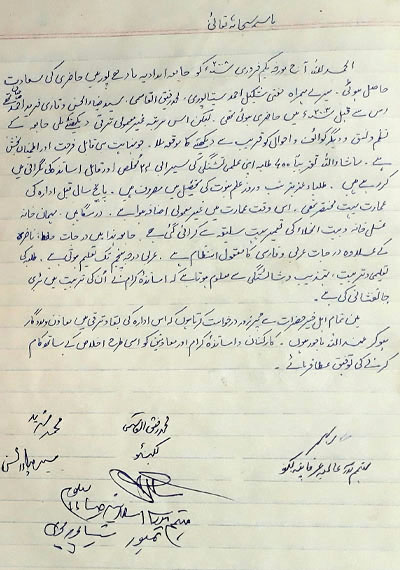 باسمہ سبحانہ تعالیٰ
الحمد للہ آج مورخہ یکم فروری ۲۰۰۸ء کو جامعہ امدادیہ مادھے پور میں حاضری کی سعادت
حاصل ہوئی۔ میرے ہمراہ مفتی شکیل احمد سیتاپوری، محمد رفیق القاسمی، سید ضیاء الحسن و قاری فرید احمد
اس سے قبل ۲۰۰۳ء میں حاضری ہوئی تھی۔ لیکن اس مرتبہ غیر معمولی ترقی دیکھنے ملی جامعہ کے
نظم و نسق و دیگر کوائف و احوال کو قریب سے دیکھنے کا موقعہ ملا۔ جو نہایت ہی قابل فرحت اور اطمینان بخش
ہے۔ ماشاء اللہ تقریباً ۴۰۰ طلبہ اپنی علمی تشنگی کی سیرابی ۲۲ مخلص اور قابل اساتذہ کی نگرانی میں
کر رہے ہیں۔ طلباء عزیز شب و روز علم نبوت کی تحصیل میں مصروف ہیں۔ پانچ سال قبل ادارہ کی
عمارت بہت مختصر تھی۔ اس وقت عمارت میں غیر معمولی اضافہ ہوا ہے۔ درسگاہیں، مہمان خانہ
غسل خانہ و بیت الخلاء کی تعمیر بہت سلیقہ سے کرائی گئی ہے۔ جامعہ ہذا میں درجات حفظ، ناظرہ
کے علاوہ درجات عربی و فارسی کا معقول انتظام ہے۔ عربی درجہ پنجم تک تعلیم ہوتی ہے۔ طلبہ کی
تعلیمی و تربیت، تہذیب و شائستگی سے معلوم ہوتا ہے کہ اساتذہ کرام نے ان کی تربیت میں بڑی
جانفشانی کی ہے۔
میں تمام اہل خیر حضرات سے پر زور درخواست کرتا ہوں کہ اس ادارہ کی بقاء و ترقی میں معاون و مددگار
ہو کر عند اللہ ماجور ہوں۔ کارکنان و اساتذہ کرام اور معاونین کو اسی طرح اخلاص کے ساتھ کام
کرنے کی توفیق عطا فرمائے۔
محمد رفیق القاسمی
محمد فرید
لکھنؤ
سید ضیاء الحسن